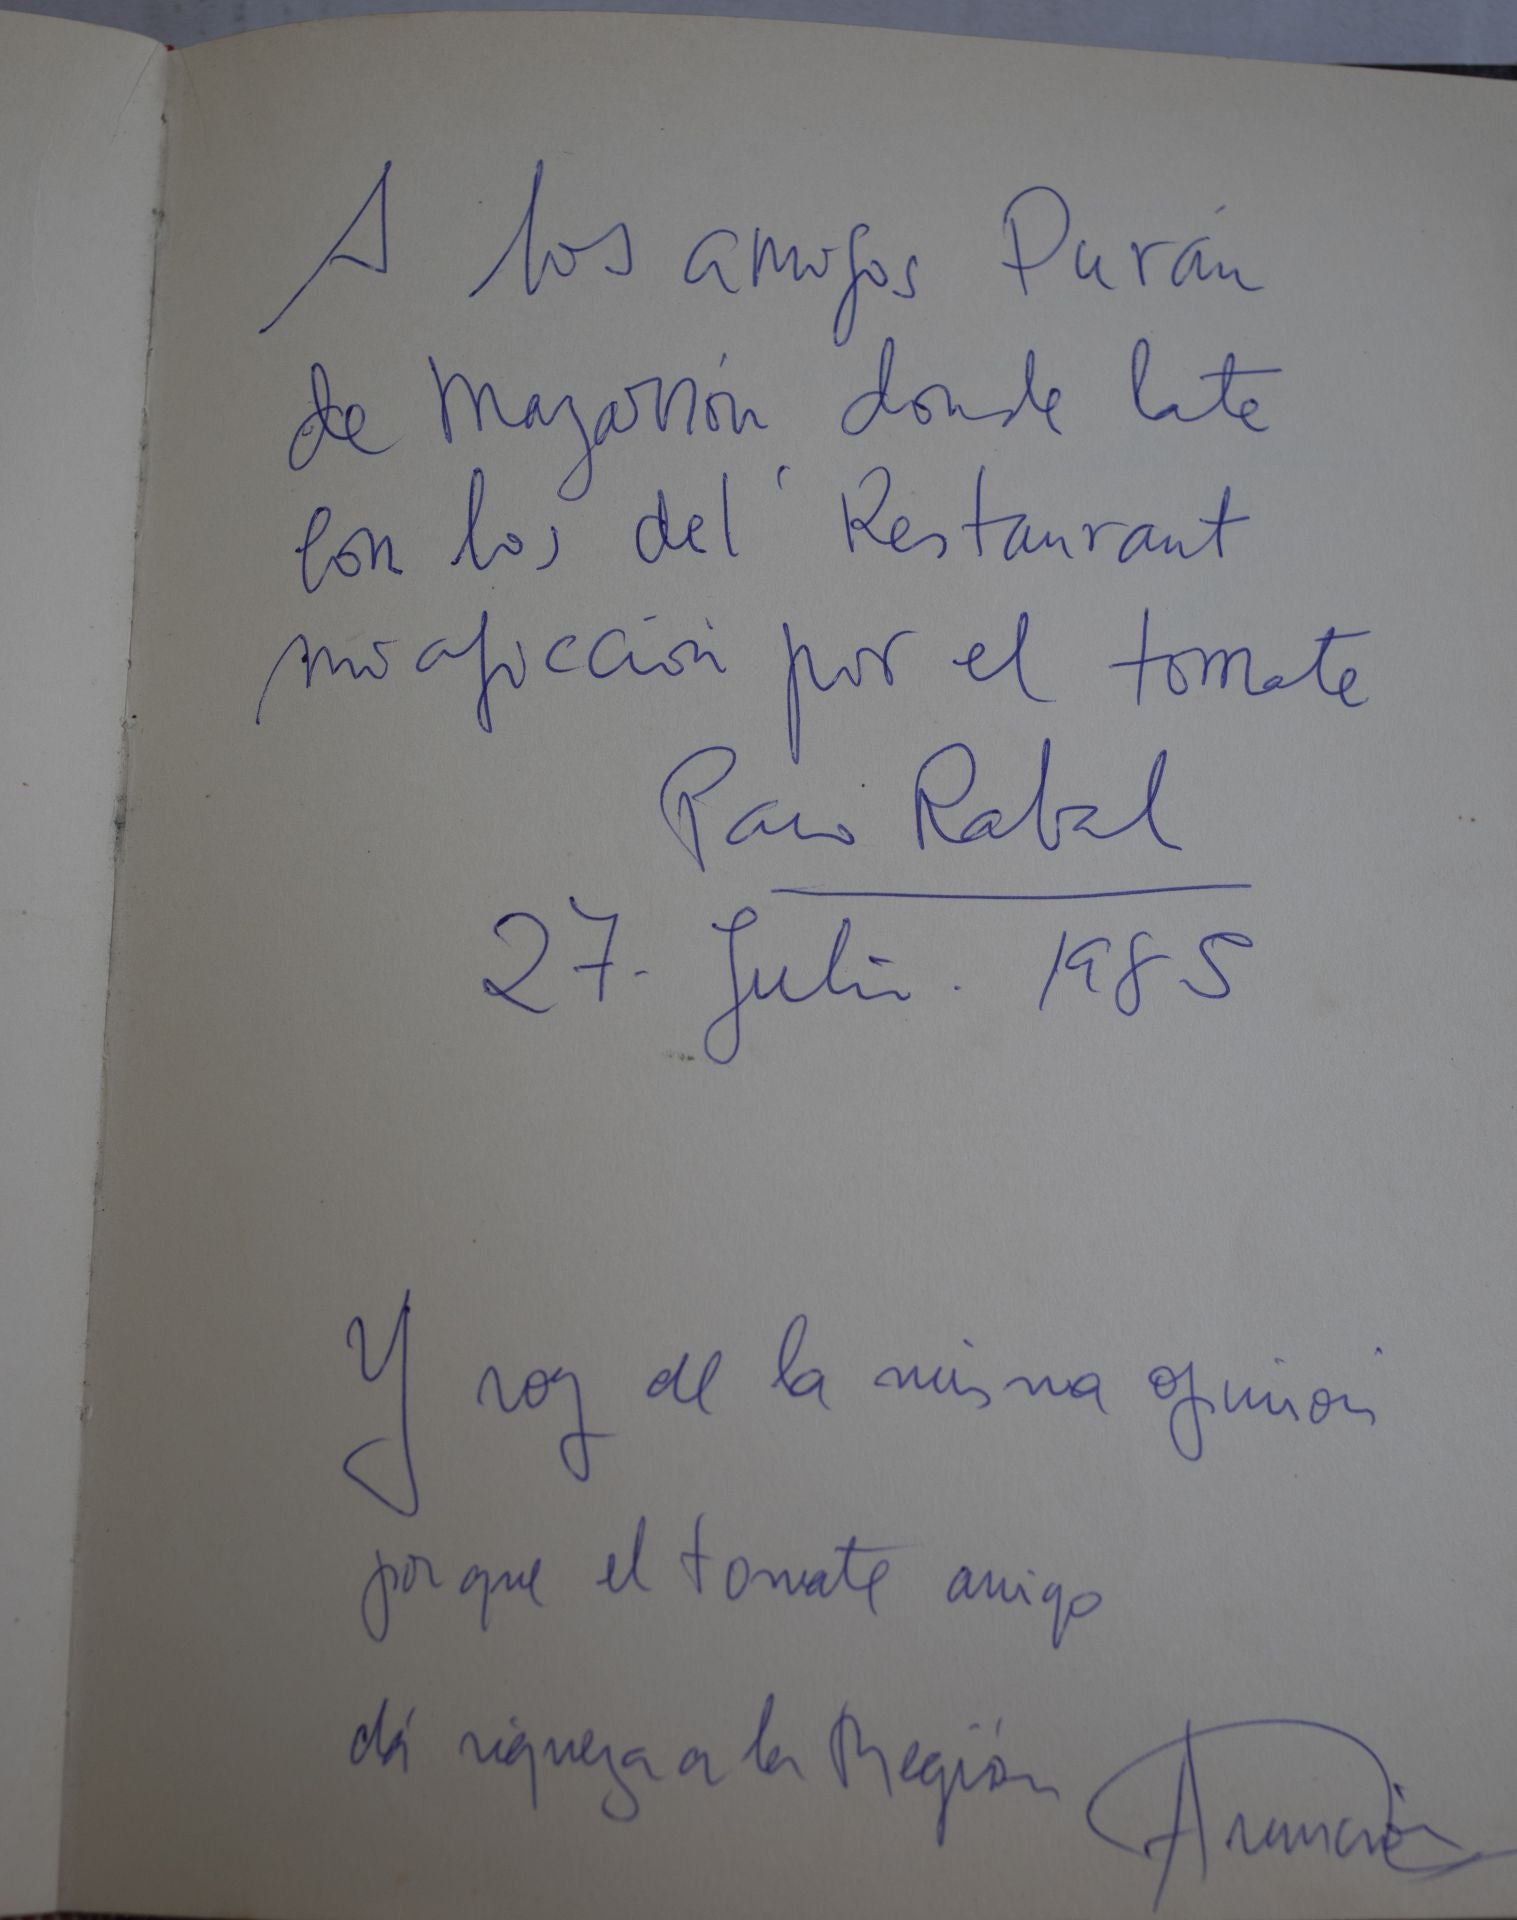 A los amigos Durán
de Mazarrón donde late
con los del Restaurant
mi aficción por el tomate
Paco Rabal
27. Julio. 1985
Y soy de la misma opinión
porque el tomate amigo
dá riqueza a la Región
Asunción